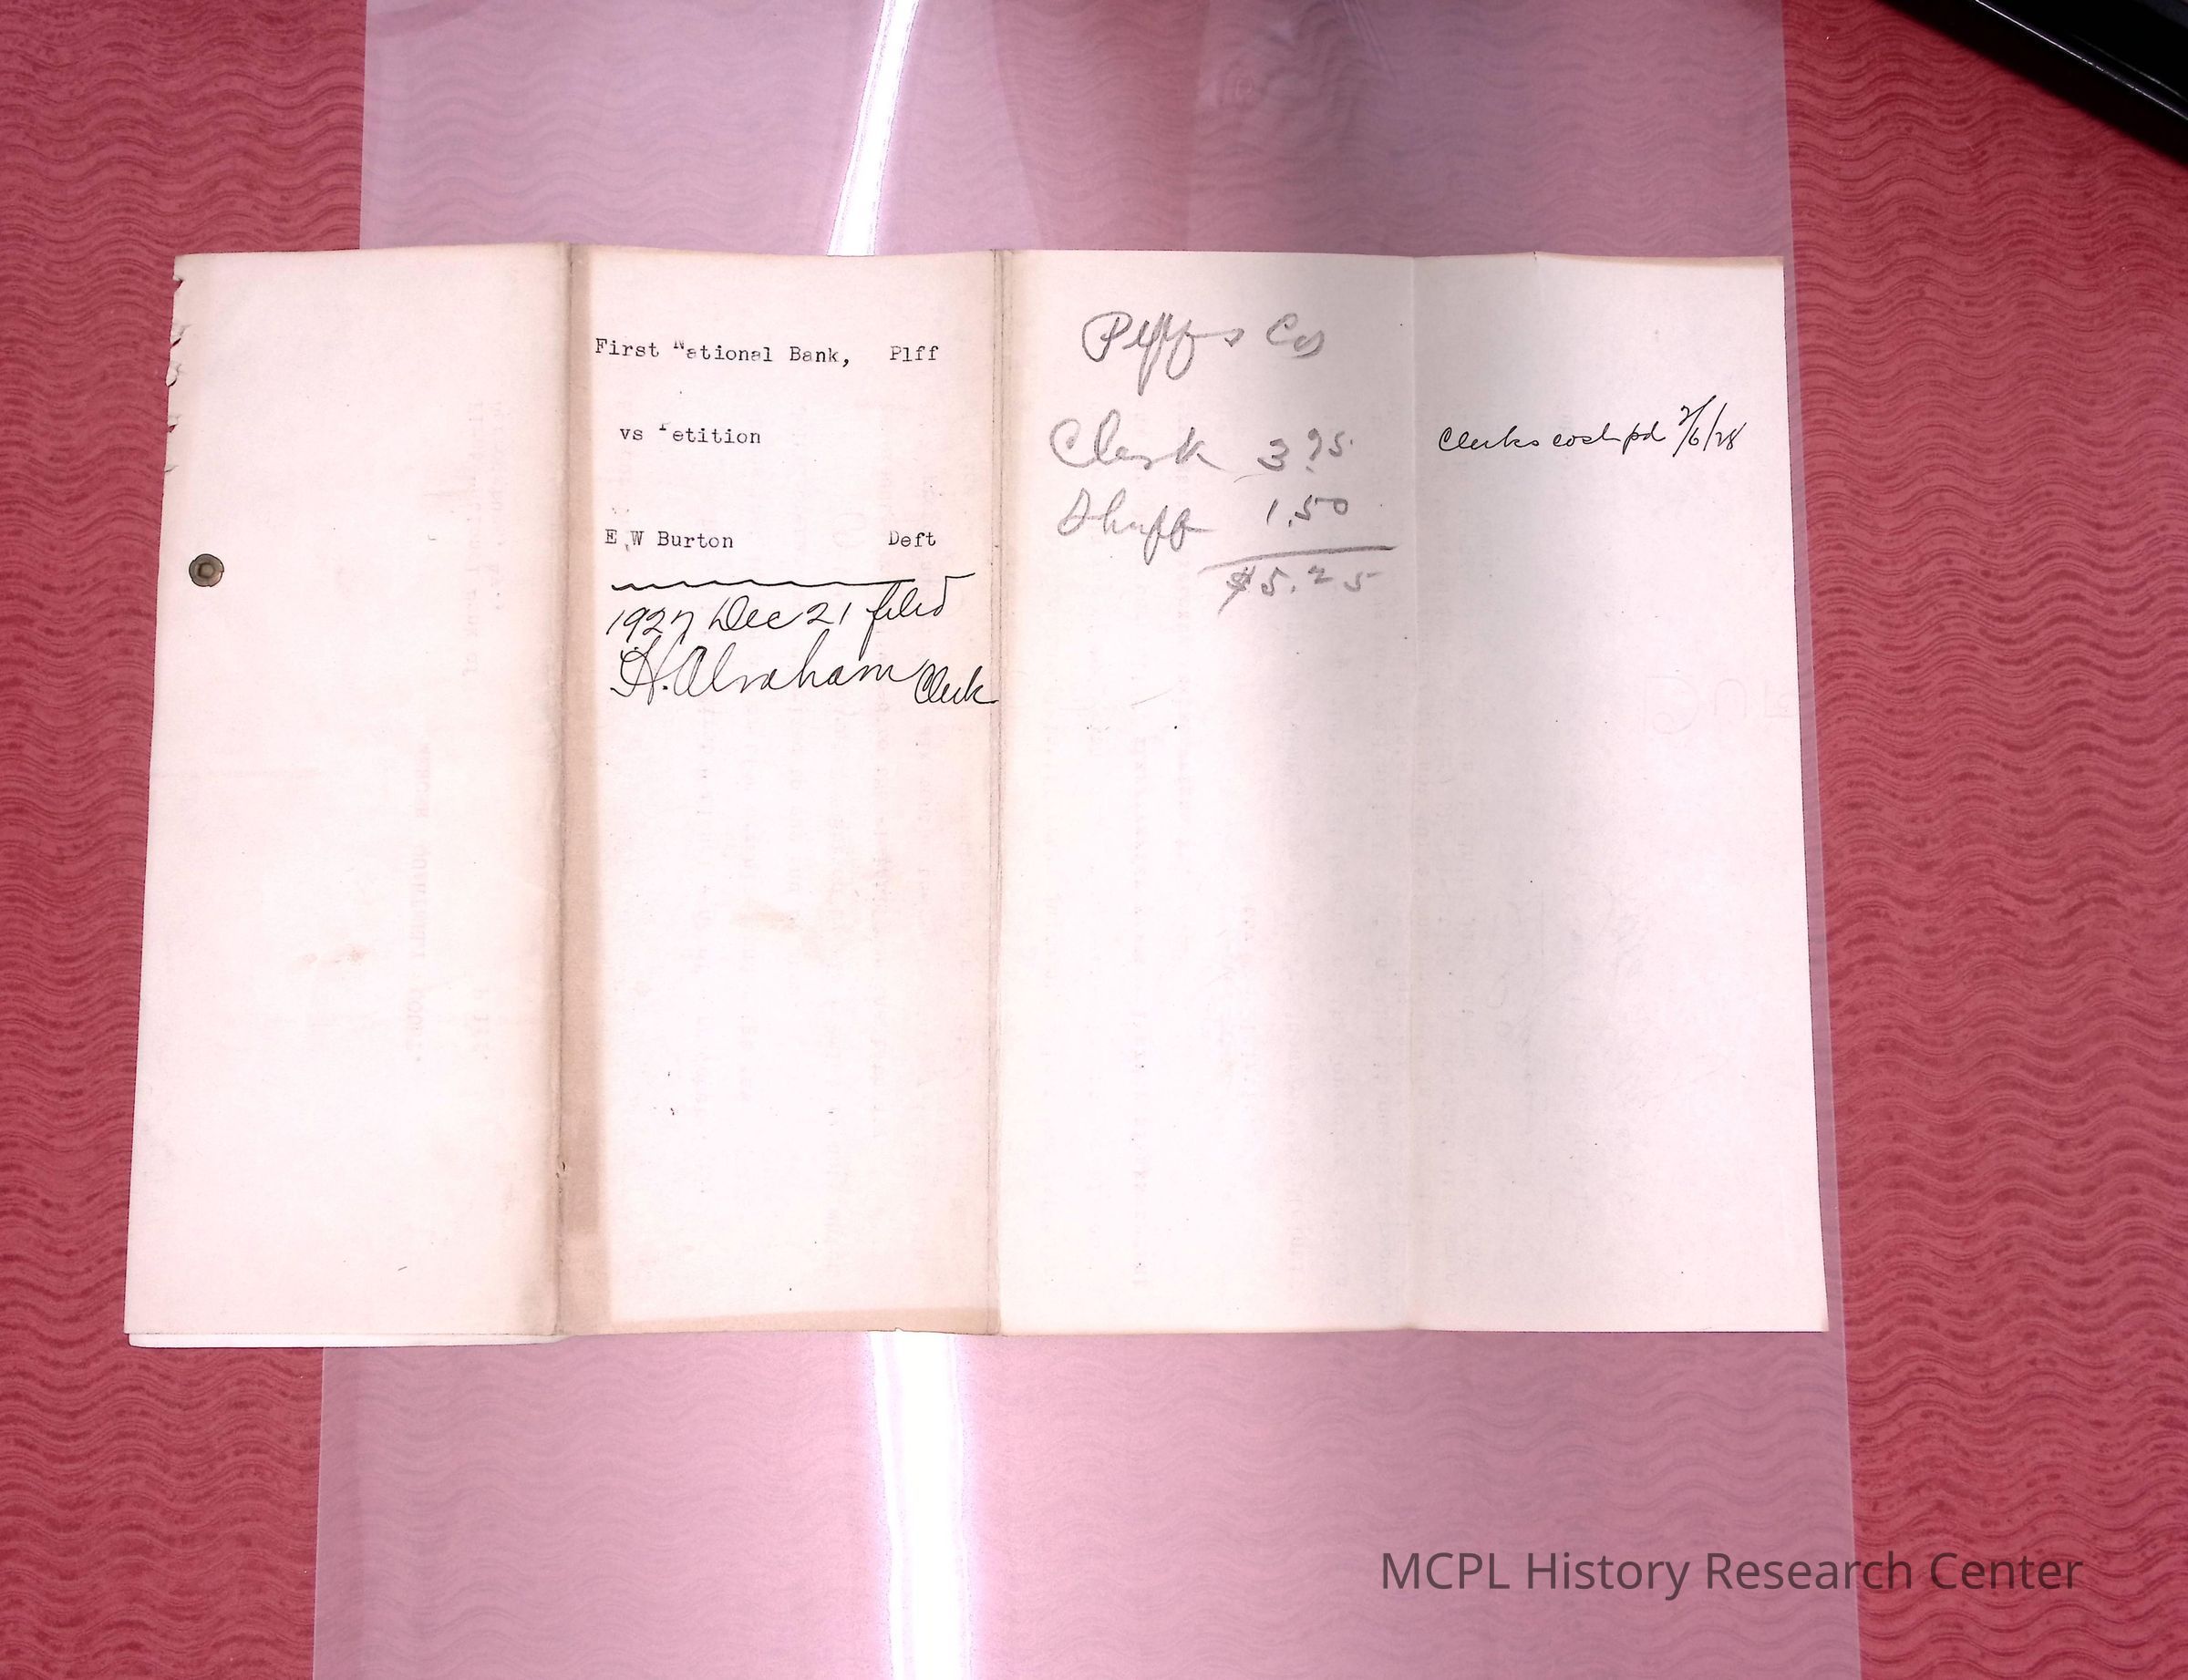 First National Bank, Plff
vs Petition
E W Burton Deft
1927 Dec 21 filed
H. Abraham Clerk
Plffs Cos
Clerk 3.75
Shuff 1.50
$5.25
Clerks cost pd 2/6/28
MCPL History Research Center